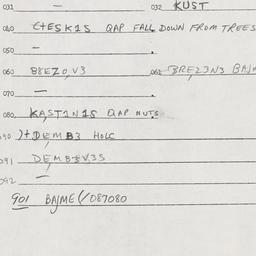 031 — 032 KUST
040 QAP FALL DOWN FROM TREES
050 —
060 BBEZO,V3 062 BREZ3N3
070 —
080 KASTIN1S QAP NUTS
090 )+DEMB3 HOLC
091 DEMBEV,3S
092 —
901 BAJME(/087080